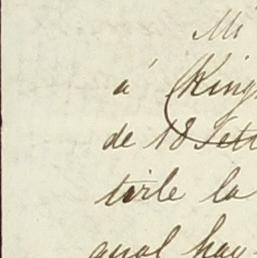 Mi
á King
de 18 Sett
tirle la
qual hay